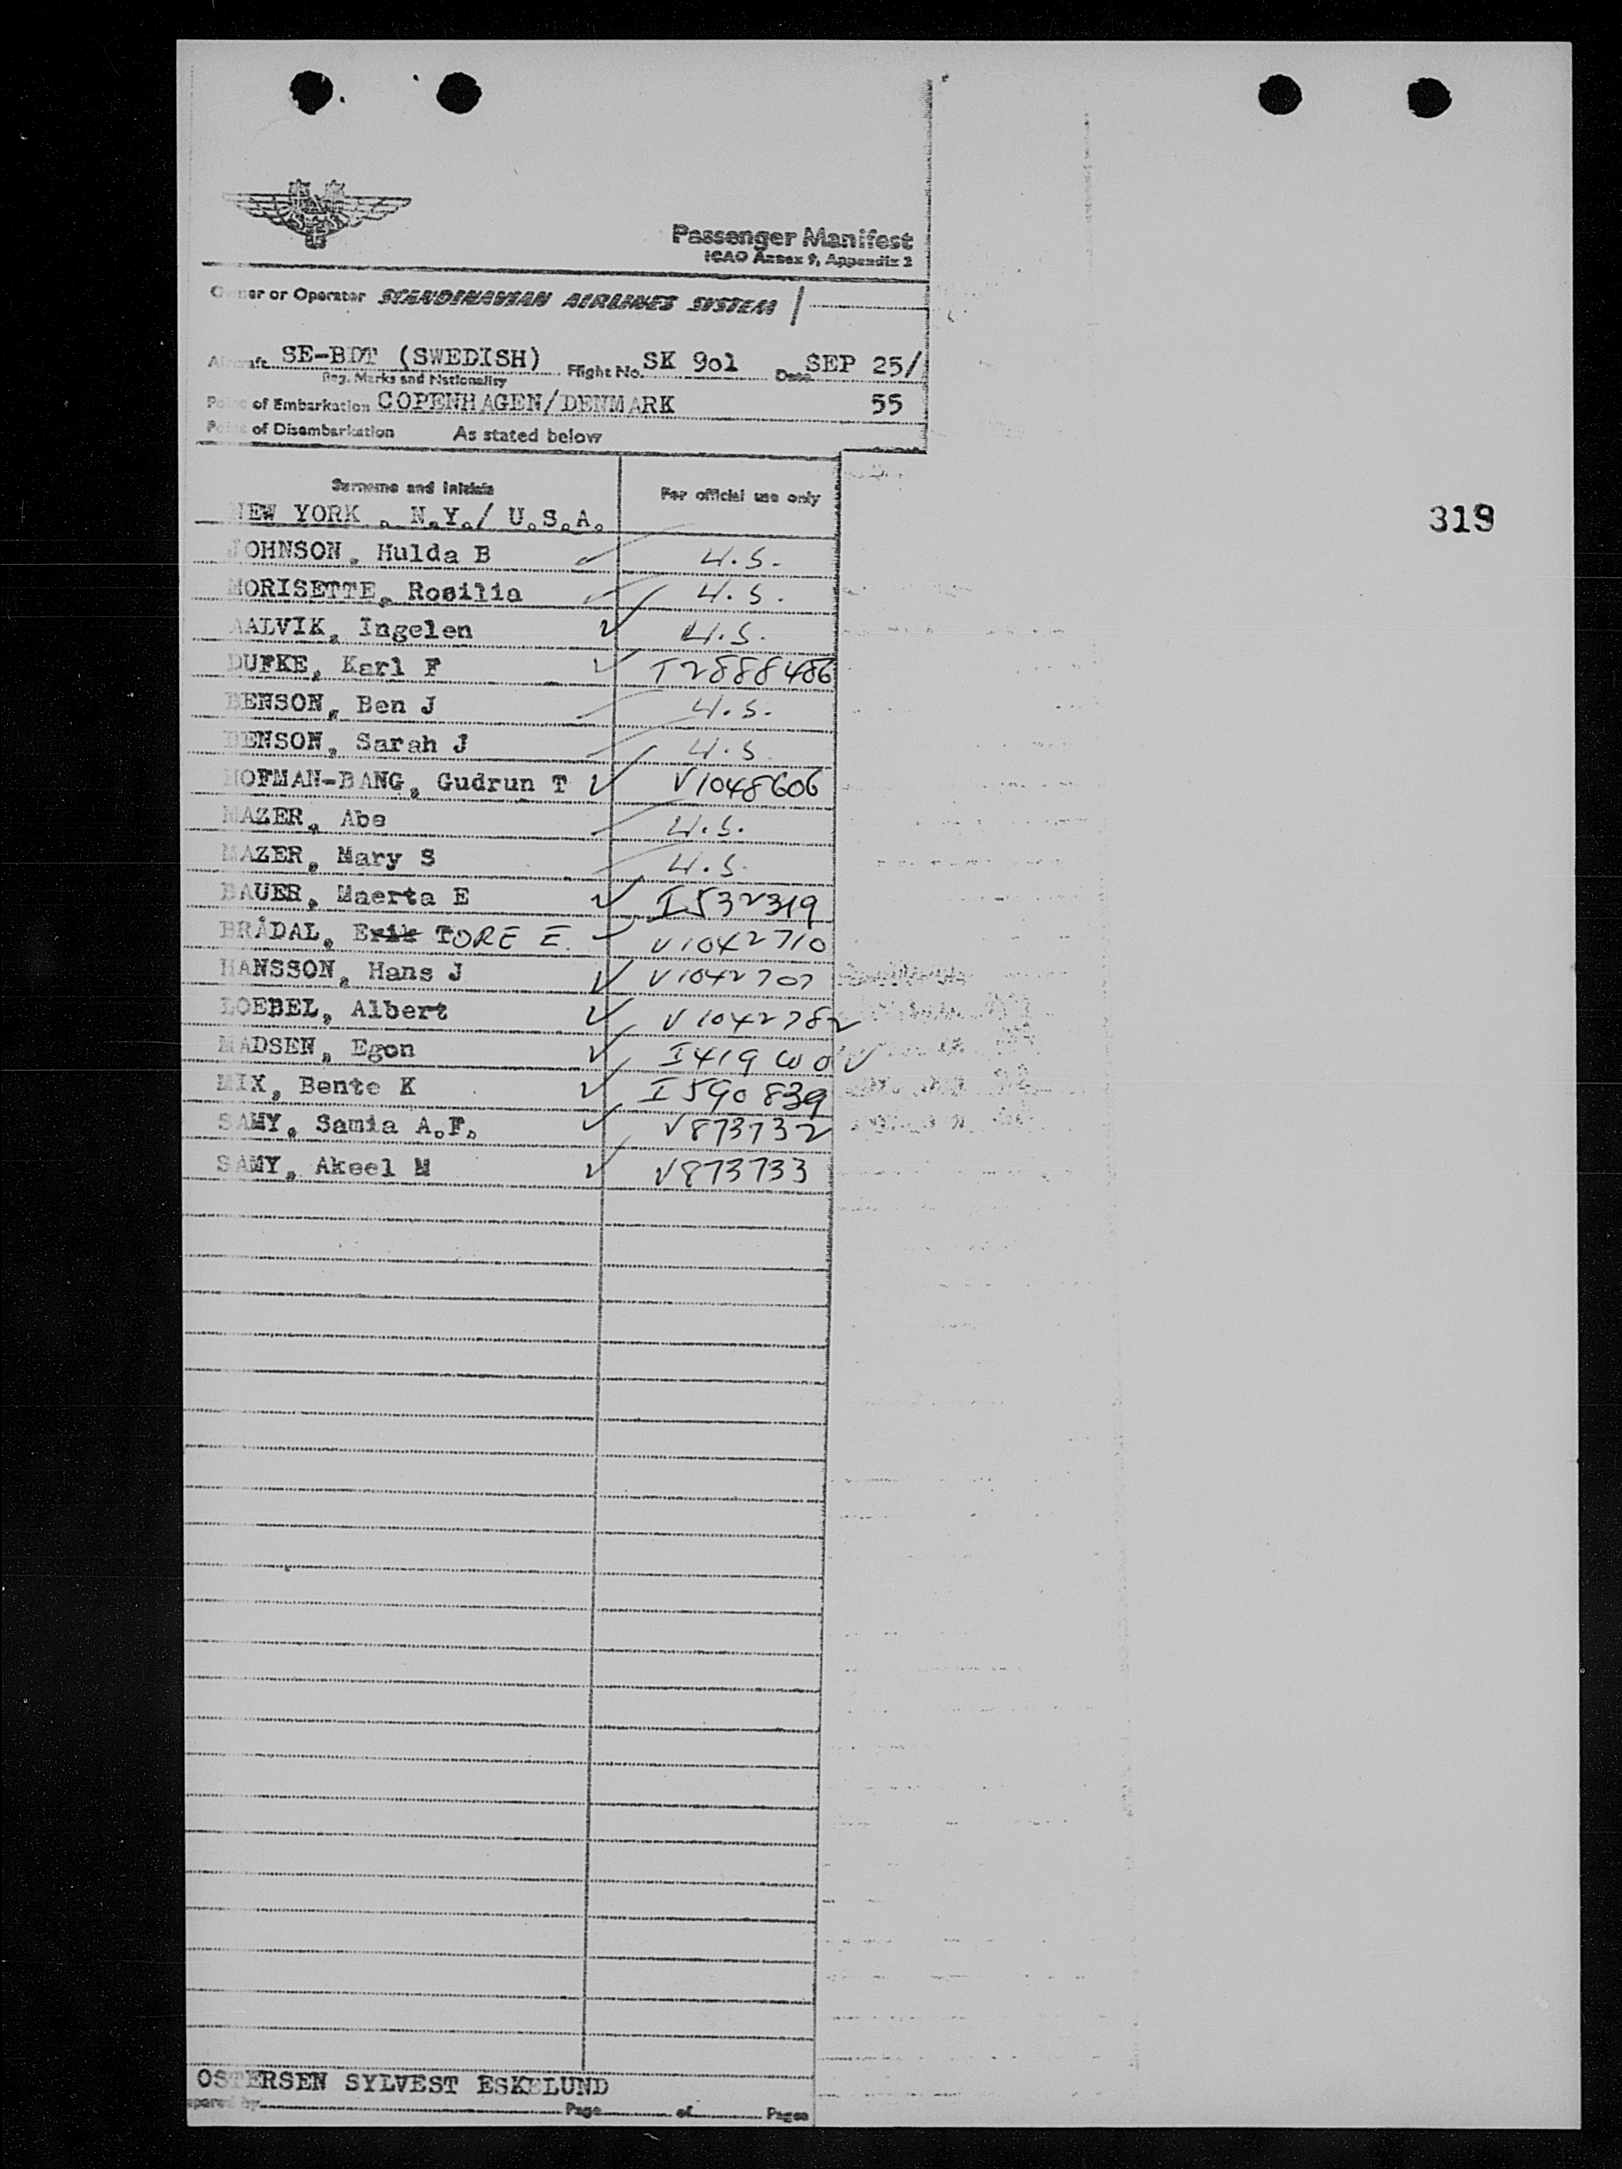 Passenger Manifest
ICAO Annex 9, Appendix 2
Owner or Operator SCANDINAVIAN AIRLINES SYSTEM
Aircraft SE-BDT (SWEDISH) Flight No. SK 901 Date SEP 25/
Reg. Marks and Nationality
Point of Embarkation COPENHAGEN/DENMARK 55
Point of Disembarkation As stated below
Surname and initials For official use only
NEW YORK, N.Y./ U.S.A.
319
JOHNSON, Hulda B U.S.
MORISETTE, Rosilia U.S.
AALVIK, Ingelen U.S.
DUFKE, Karl F T2888486
BENSON, Ben J U.S.
BENSON, Sarah J U.S.
HOFMAN-BANG, Gudrun T V1048606
MAZER, Abe U.S.
MAZER, Mary S U.S.
BAUER, Maerta E I532319
BRÅDAL, Erik TORE E. V1042710
HANSSON, Hans J V1042707
LOEBEL, Albert V1042782
MADSEN, Egon
MIX, Bente K I590839
SAMY, Samia A.F. V873732
SAMY, Akeel M V873733
OSTERSEN SYLVEST ESKELUND
Prepared by Page of Pages